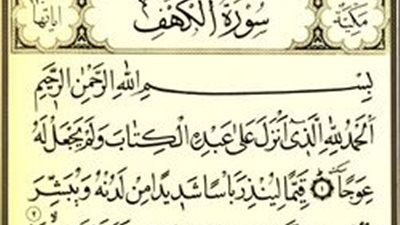 مكية سورة الكهف اياتها
بِسْمِ اللهِ الرَّحْمٰنِ الرَّحِيمِ
اَلْحَمْدُ لِلّٰهِ الَّذٖى اَنْزَلَ عَلٰى عَبْدِهِ الْكِتَابَ وَلَمْ يَجْعَلْ لَهُ
عِوَجًا ۝ قَيِّمًا لِيُنْذِرَ بَأْسًا شَدٖيدًا مِنْ لَدُنْهُ وَيُبَشِّرَ